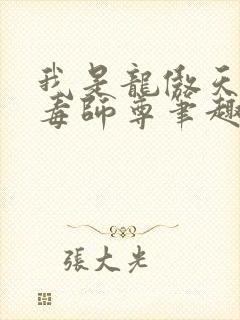 我是龍傲天
毒師尊筆趣
張大光